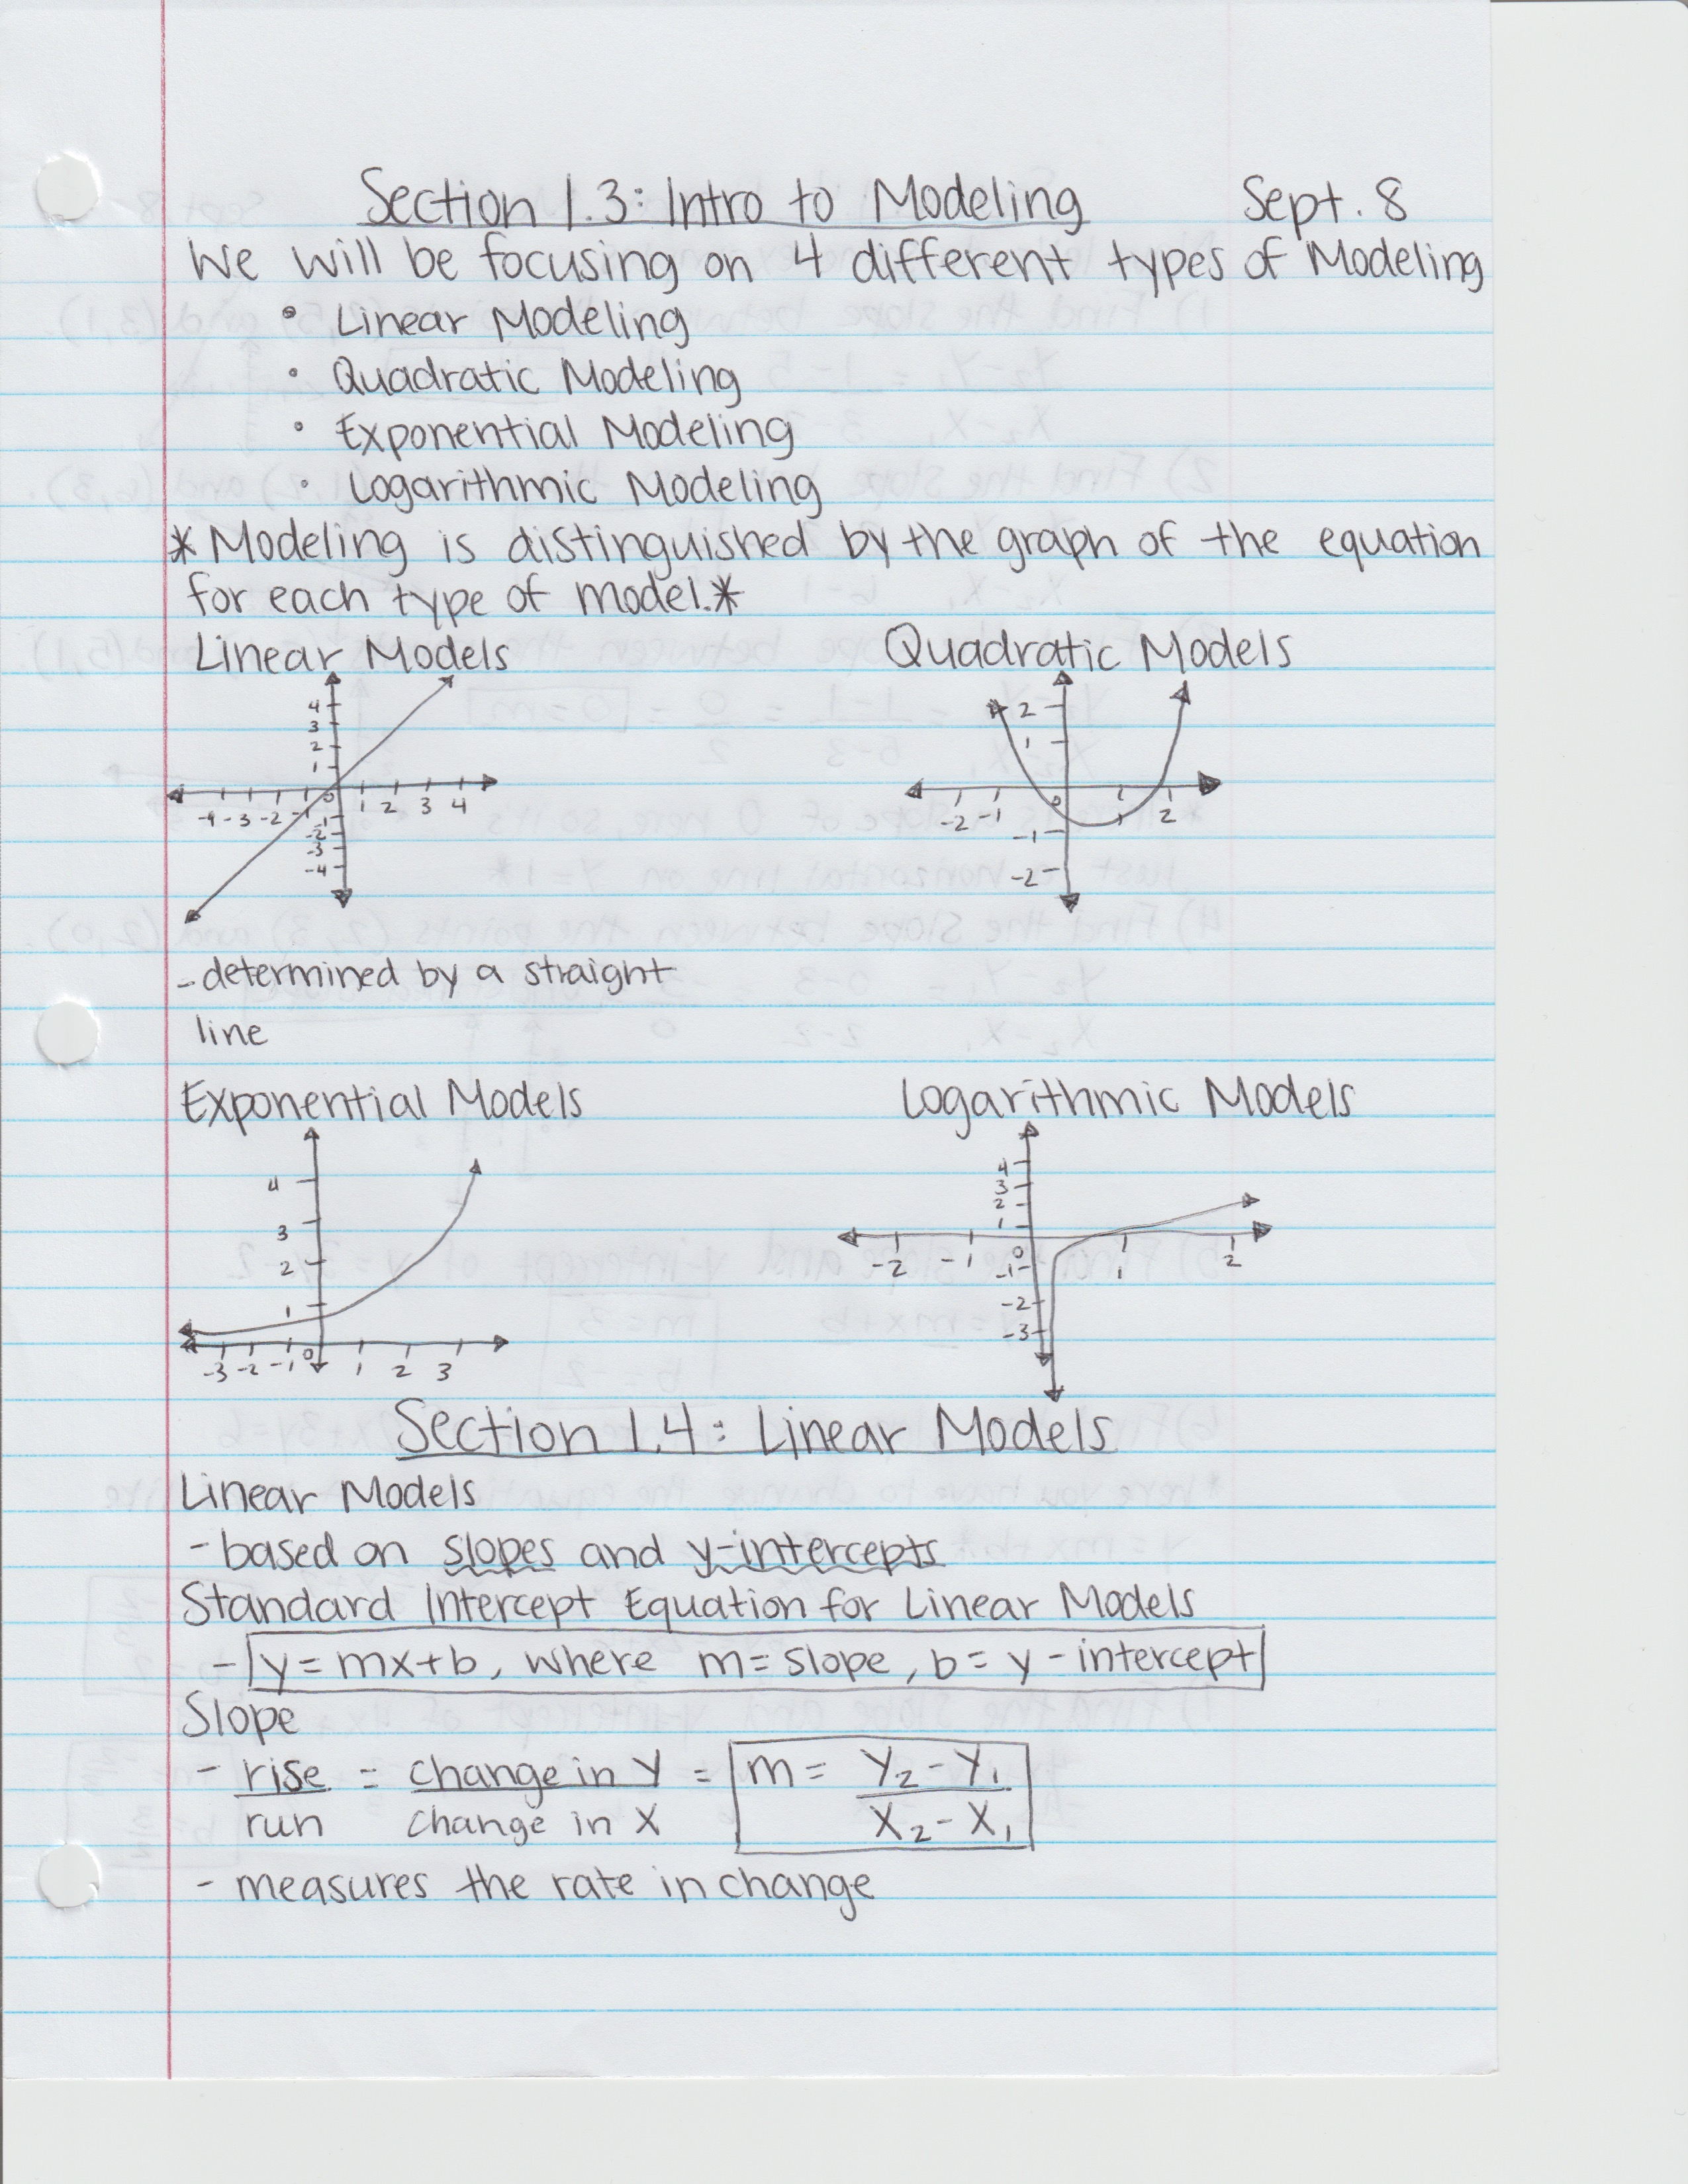 Section 1.3: Intro to Modeling Sept. 8
We will be focusing on 4 different types of Modeling
• Linear Modeling
• Quadratic Modeling
• Exponential Modeling
• Logarithmic Modeling
* Modeling is distinguished by the graph of the equation
for each type of model.*
Linear Models Quadratic Models
4
3
2
1
-4 -3 -2 -1 0 1 2 3 4
-1
-2
-3
-4
2
1
-2 -1 0 1 2
-1
-2
- determined by a straight
line
Exponential Models Logarithmic Models
4
3
2
1
-3 -2 -1 0 1 2 3
4
3
2
1
-2 -1 0 1 2
-1
-2
-3
Section 1.4: Linear Models
Linear Models
- based on slopes and y-intercepts
Standard Intercept Equation for Linear Models
- y = mx+b, where m = slope, b = y-intercept
Slope
- rise = change in y = m = y₂ - y₁
run change in x x₂ - x₁
- measures the rate in change